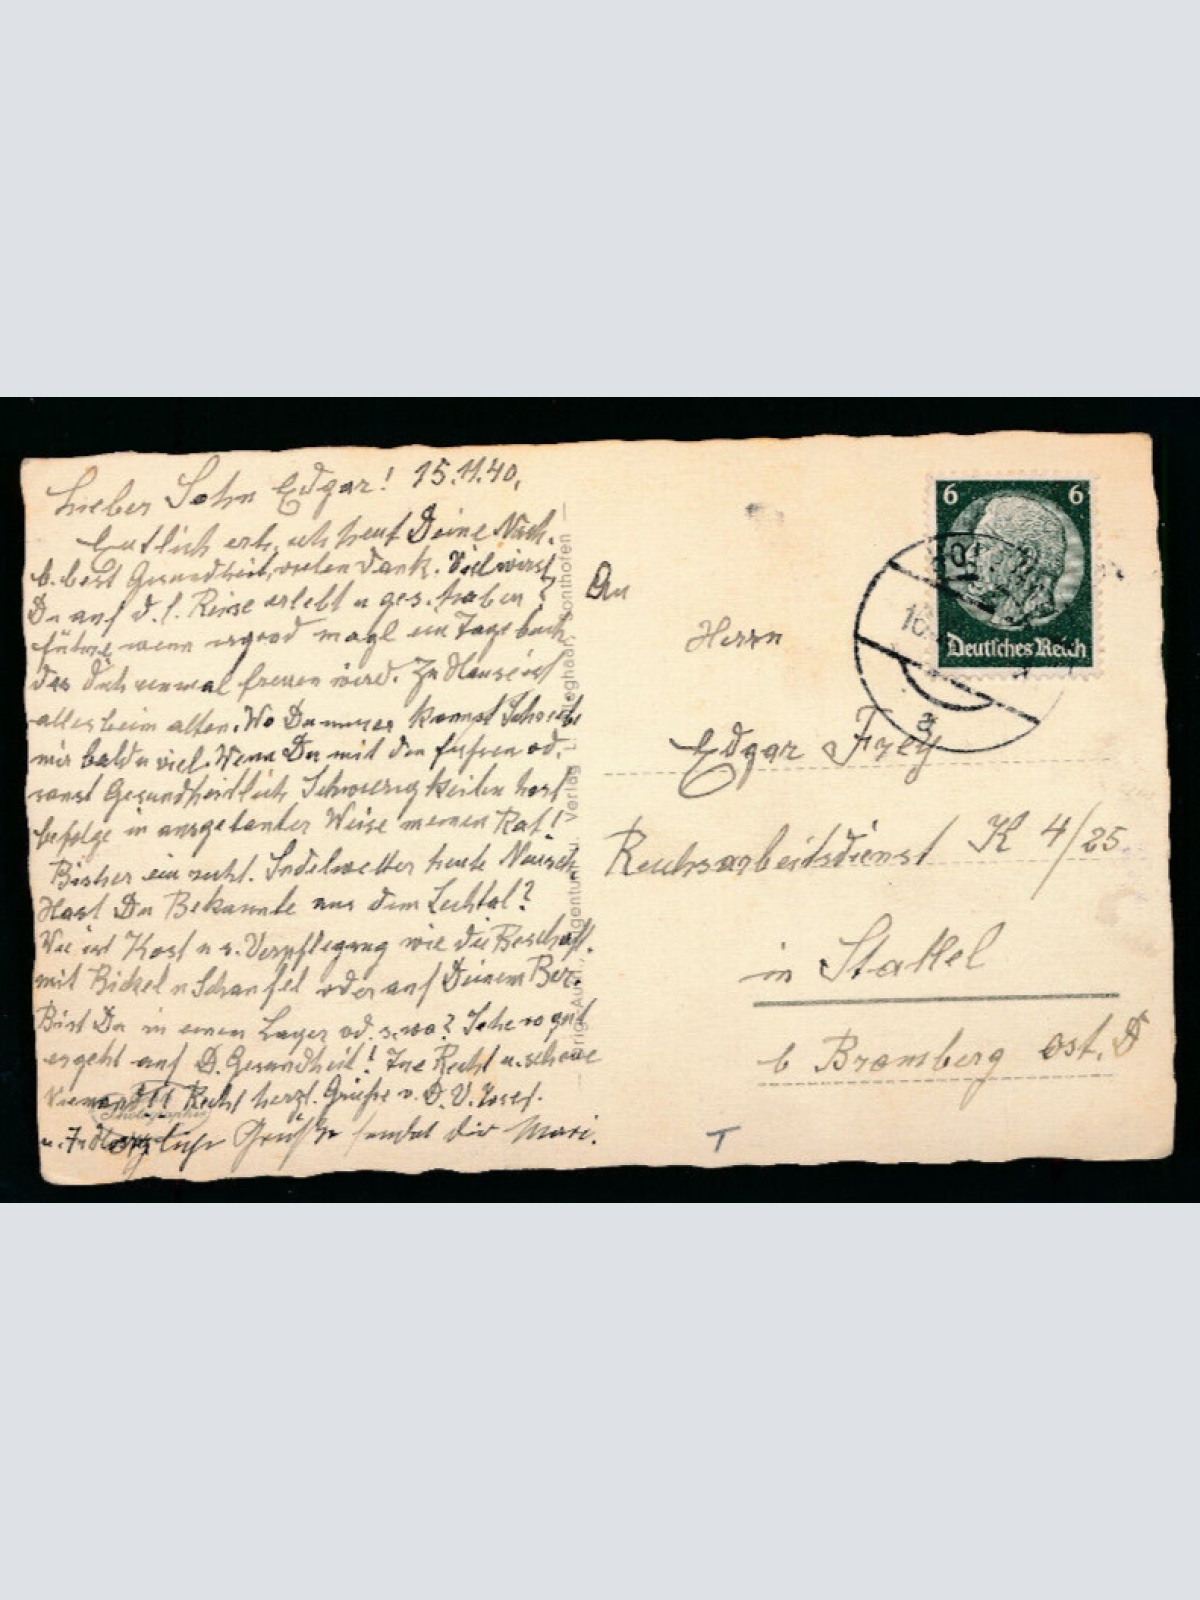 Lieber Sohn Edgar! 15.11.40.
Entlich erh. ich heut Deine Nach.
b. best Gesundheit, vielen Dank. Viel wirst
Du auf d. l. Reise erlebt u ges. haben?
führe wenn irgend mögl ein Tagebuch
das dich einmal freuen wird. Zu Hause ist
alles beim alten. Wo Du immer kannst Schreibe
mir bald u viel. Wenn Du mit den füssen od.
sonst Gesundheitlich Schwierigkeiten hast
befolge in ausgetanter Weise meinen Rat!
Bisher ein recht. Sudelwetter heute
Hast Du Bekannte aus dem Lechtal?
Wie ist Kost u s. Verpflegung wie die Beschäft.
mit Bickel u Schaufel oder auf Deinem Ber.
Bist Du in einem Lager od. s. wo? Sehe so gut
es geht auf D. Gesundheit! Tue Recht u. scheue
Niemand!! Recht herzl. Grüsse v. D. V. Josef.
u. Grüße sendet dir Mari.
An
Herrn
Edgar Frey
Reichsarbeitsdienst K 4/25.
in
b Bromberg ost. D
T
6 6
Deutsches Reich
a
Photographie